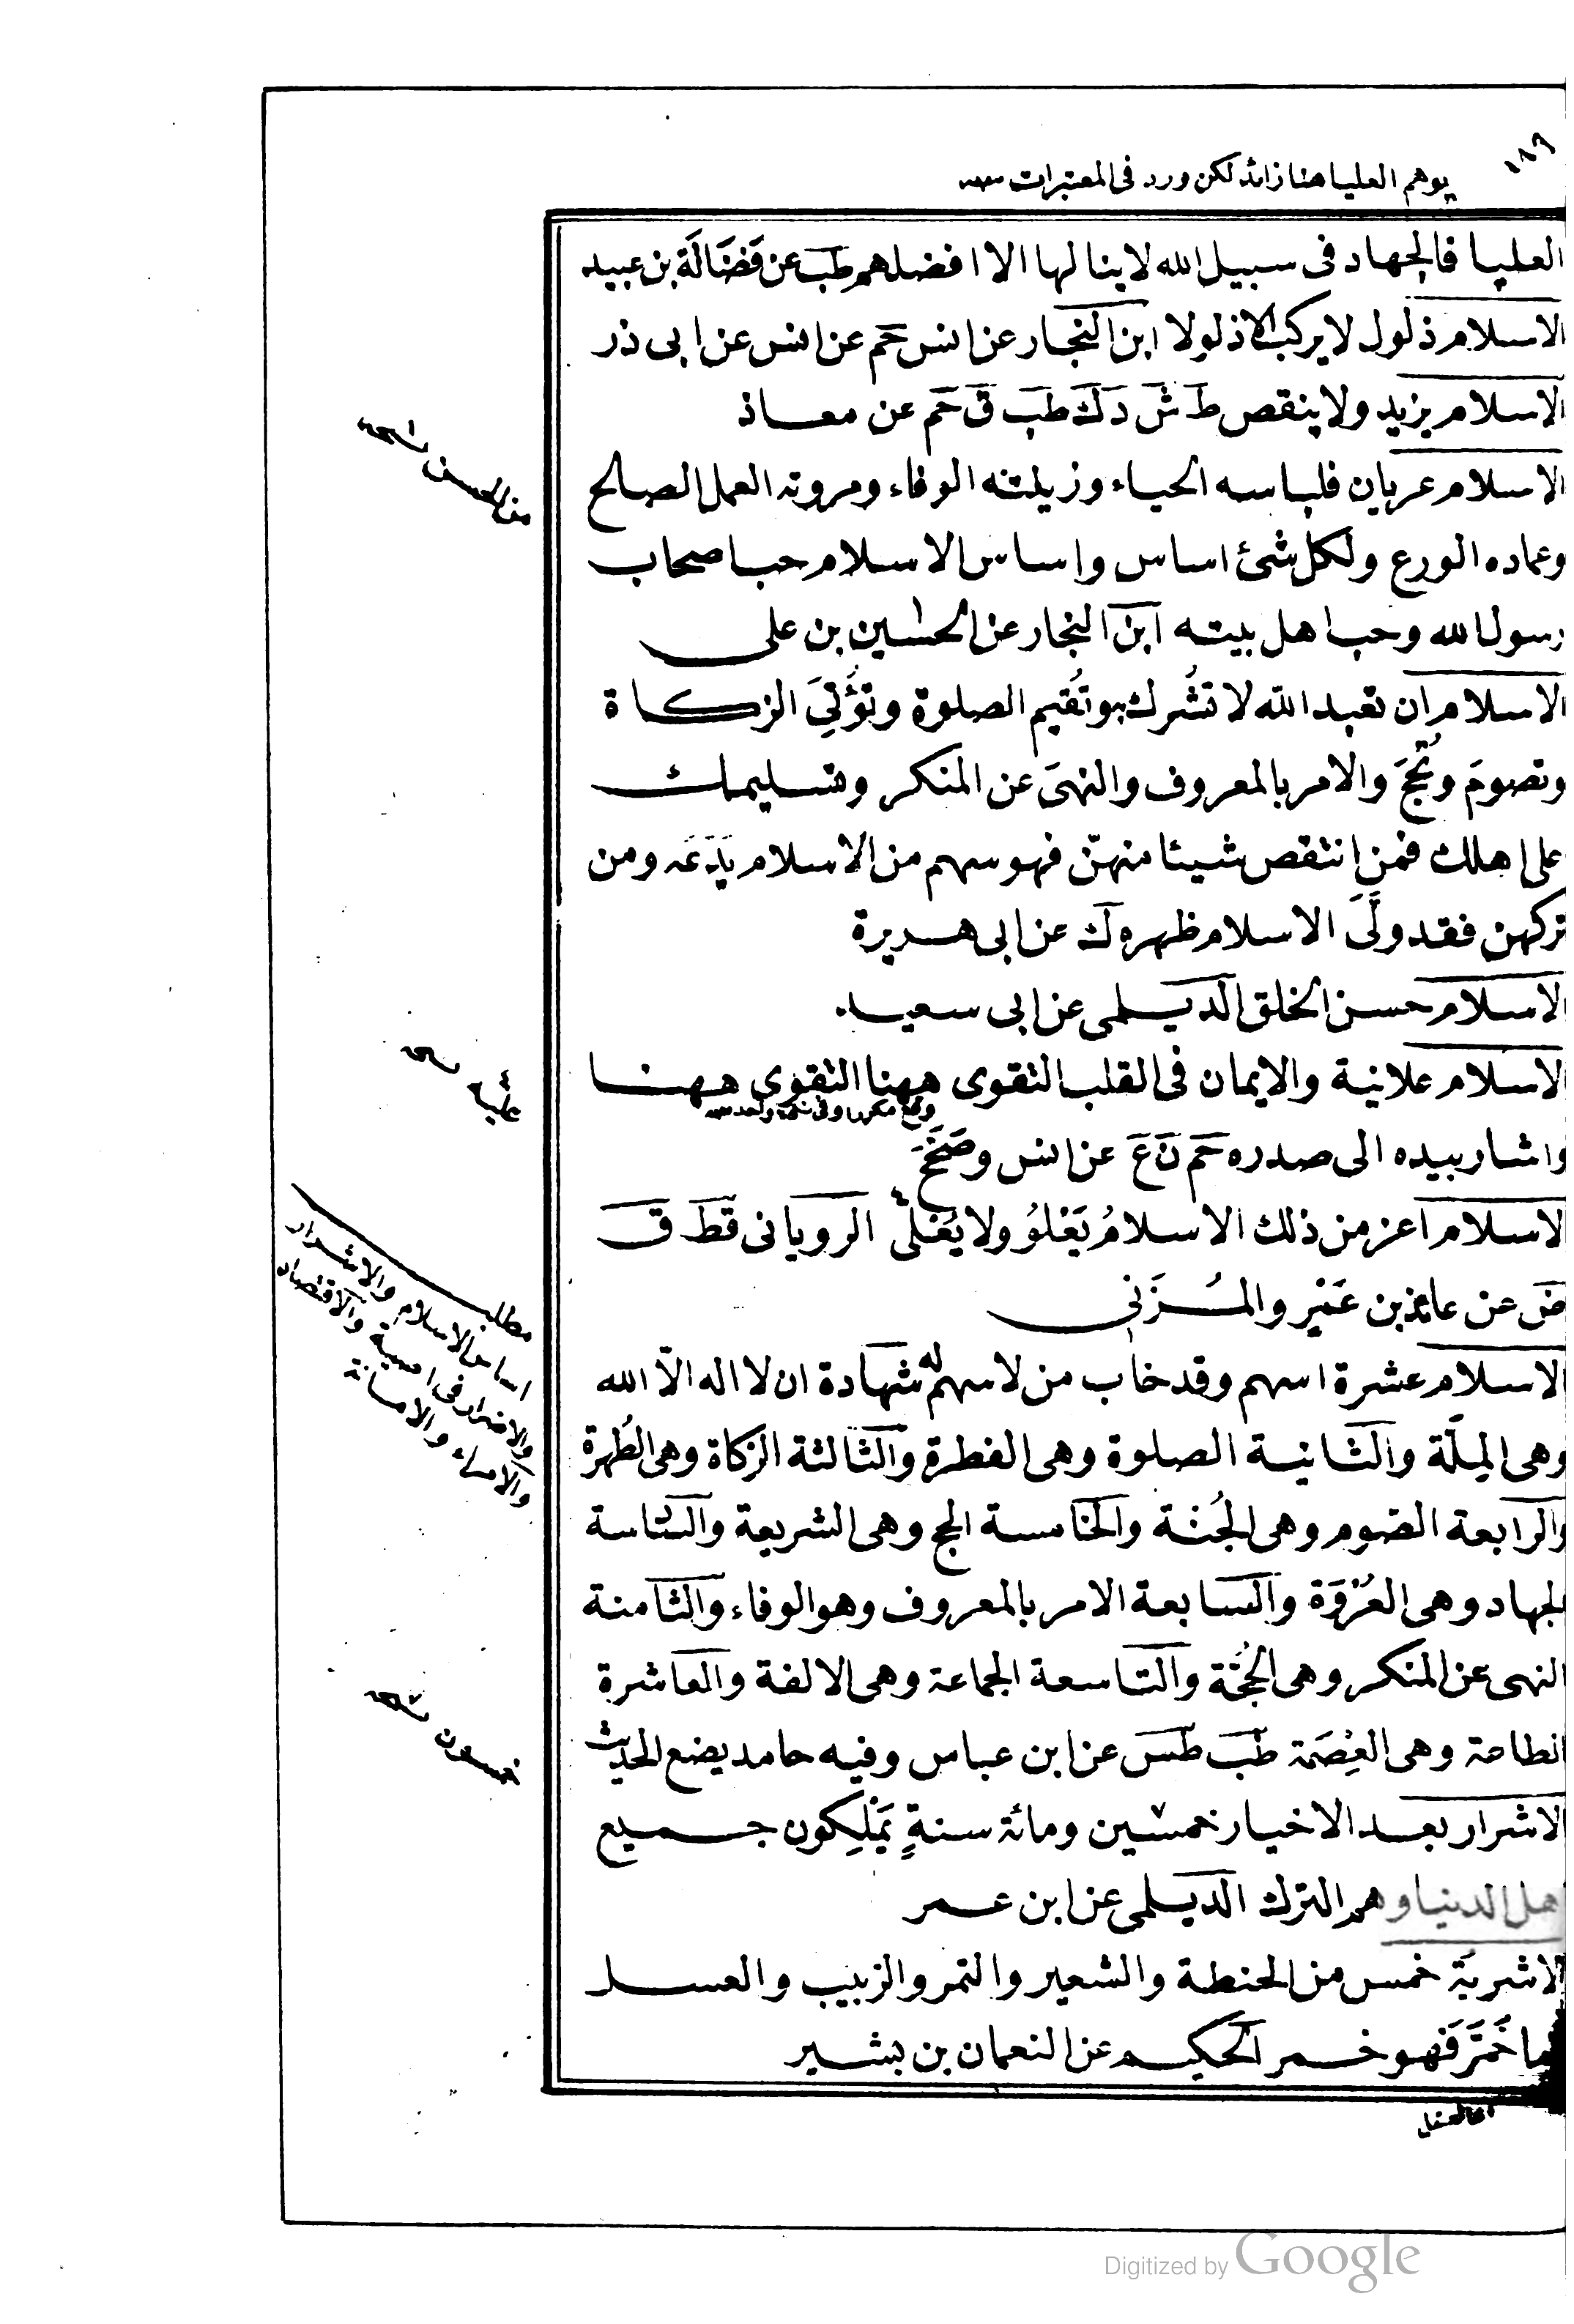 ١٨٩
يوهم العليا هنا زائد لكن ورد فى المعتبرات
العليا فالجهاد فى سبيل الله لا ينالها الا افضلهم طب عن فَضَالَة بن عبيد
الاسلام ذلول لا يركب الا ذلولا ابن النجار عن انس حم عن انس عن ابى ذر
الاسلام يزيد ولا ينقص ط ش د ك طب ق حم عن معاذ
الاسلام عريان فلباسه الحياء وزينته الوفاء ومروته العمل الصالح
وعماده الورع ولكل شئ اساس واساس الاسلام حب اصحاب
رسول الله وحب اهل بيته ابن النجار عن الحسين بن على
الاسلام ان تعبد الله لا تشرك به وتُقيم الصلوة وتؤتِىَ الزكاة
وتصومَ وتُحجَ والامر بالمعروف والنهىَ عن المنكر وتسليمك
على اهلك فمن انتقص شيئا منهنّ فهو سهم من الاسلام يَدَعَه ومن
تركهن فقد ولَّىَ الاسلام ظهره ك عن ابى هريرة
الاسلام حسن الخلق الديلمى عن ابى سعيد
الاسلام علانية والايمان فى القلب التقوى ههنا التقوى ههنا
وقع مكررا وفى نسخة واحد
واشار بيده الى صدره حم ن ع عن انس وصَحَّحَ
الاسلام اعز من ذلك الاسلامُ يَعْلوُ ولا يُعْلى الرويانى قط ق
ض عن عائذ بن عَمْرٍ والمُزَنِى
الاسلام عشرة اسهم وقد خاب من لا سهم له شهادة ان لا اله الاّ الله
وهى المِلّة والثانية الصلوة وهى الفطرة والثالثة الزكاة وهى الطُهرة
والرابعة الصوم وهى الجُنّة والخامسة الحج وهى الشريعة والسادسة
الجهاد وهى العُرْوَة والسابعة الامر بالمعروف وهو الوفاء والثامنة
النهى عن المنكر وهى الحُجّة والتاسعة الجماعة وهى الالفة والعاشرة
الطاعة وهى العِصْمَة طب طس عن ابن عباس وفيه حامد يضع الحديث
الاشرار بعد الاخيار خمسين ومائة سنةٍ يَمْلِكون جميع
اهل الدنيا وهم الترك الديلمى عن ابن عمر
الاشربة خمس من الحنطة والشعير والتمر والزبيب والعسل
ما خَمَّرَ فَهو خمر الحكيم عن النعمان بن بشير
من الحسن
مطلب
اساس الاسلام والاشرار
والاضرار فى امسية والاقتصاد
خمسون